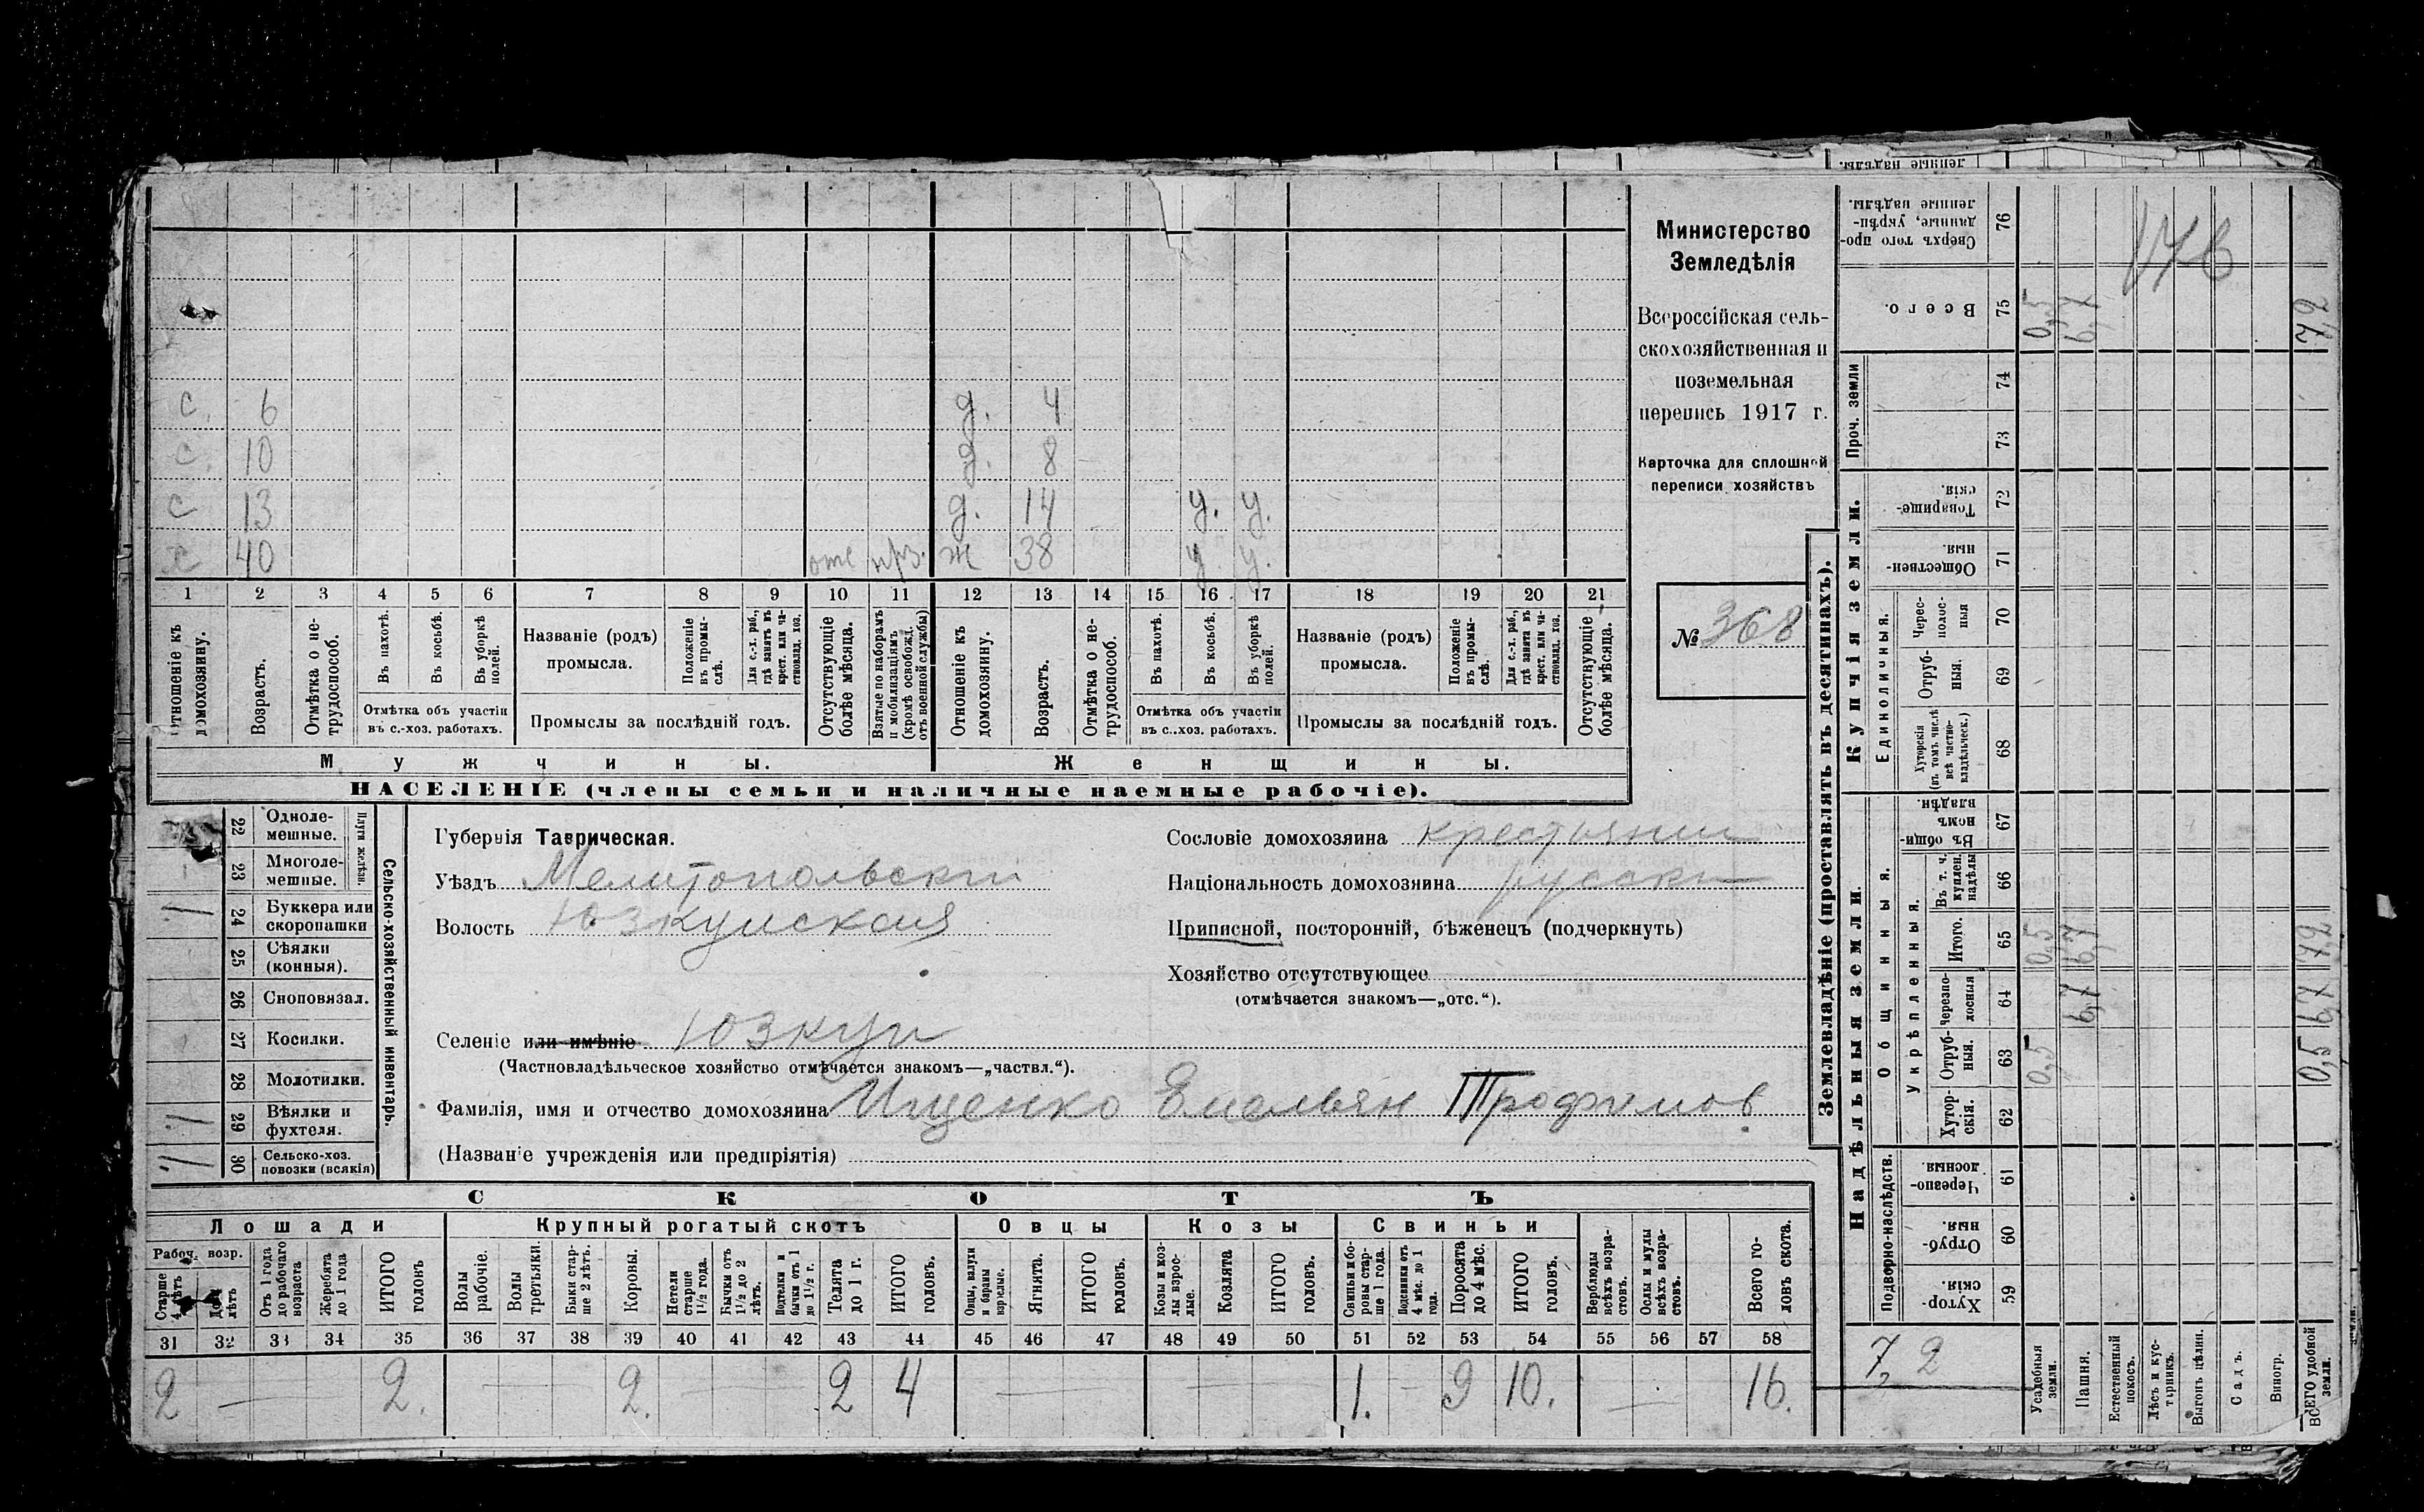 Министерство
Земледѣлія
Всероссійская сель-
скохозяйственная и
поземельная
перепись 1917 г.
Карточка для сплошной
переписи хозяйствъ
№ 368
с. 6 д. 4
с. 10 д. 8
с 13 д. 14 у. у.
х 40 отс ж 38 у. у.
1 2 3 4 5 6 7 8 9 10 11 12 13 14 15 16 17 18 19 20 21
Отношеніе къ домохозяину.
Возрастъ.
Отмѣтка о не-трудоспособ.
Въ пахотѣ.
Въ косьбѣ.
Въ уборкѣ полей.
Отмѣтка объ участіи
въ с.-хоз. работахъ.
Названіе (родъ)
промысла.
Положеніе въ промы-слѣ.
Для с.-х. раб., гдѣ занятъ въ крест. или ча-стновлад. хоз.
Промыслы за послѣдній годъ.
Отсутствующіе болѣе мѣсяца.
Взятые по наборамъ и мобилизаціямъ (кромѣ освобожд. отъ военной службы)
Отношеніе къ домохозяину.
Возрастъ.
Отмѣтка о не-трудоспособ.
Въ пахотѣ.
Въ косьбѣ.
Въ уборкѣ полей.
Отмѣтка объ участіи
въ с.-хоз. работахъ.
Названіе (родъ)
промысла.
Положеніе въ промы-слѣ.
Для с.-х. раб., гдѣ занята въ крест. или ча-стновлад. хоз.
Промыслы за послѣдній годъ.
Отсутствующіе болѣе мѣсяца.
Мужчины.
Женщины.
НАСЕЛЕНІЕ (члены семьи и наличные наемные рабочіе).
Сельско-хозяйственный инвентарь.
Плуги желѣзн.
22 Одноле-мешные.
23 Многоле-мешные.
1 24 Буккера или скоропашки
25 Сѣялки (конныя).
26 Сноповязал.
27 Косилки.
28 Молотилки.
1 29 Вѣялки и фухтеля.
1 30 Сельско-хоз. повозки (всякія)
Губернія Таврическая.
Уѣздъ Мелитопольскій
Волость Юзкуйская
Селеніе или имѣніе Юзкуи
(Частновладѣльческое хозяйство отмѣчается знакомъ—„частвл.“).
Фамилія, имя и отчество домохозяина Ищенко Емельян Трофимов.
(Названіе учрежденія или предпріятія)
Сословіе домохозяина крестьянин
Національность домохозяина русскій
Приписной, посторонній, бѣженецъ (подчеркнуть)
Хозяйство отсутствующее
(отмѣчается знакомъ—„отс.“).
СКОТЪ
Лошади
Рабоч. возр.
Старше 4 лѣтъ
До 4 лѣтъ
Отъ 1 года до рабочаго возраста
Жеребята до 1 года
ИТОГО головъ
Крупный рогатый скотъ
Волы рабочіе.
Волы третьяки.
Быки стар-ше 2 лѣтъ.
Коровы.
Нетели старше 1½ года.
Бычки отъ 1½ до 2 лѣтъ.
Подтелки и бычки отъ 1 до 1½ г.
Телята до 1 г.
ИТОГО головъ.
Овцы
Овцы, валухи и бараны взрослые.
Ягнята.
ИТОГО головъ.
Козы
Козы и коз-лы взрос-лые.
Козлята
ИТОГО головъ.
Свиньи
Свиньи и бо-ровы стар-ше 1 года.
Подсвинки отъ 4 мѣс. до 1 года.
Поросята до 4 мѣс.
ИТОГО головъ.
Верблюды всѣхъ возра-стовъ.
Ослы и мулы всѣхъ возра-стовъ.
Всего го-ловъ скота.
31 32 33 34 35 36 37 38 39 40 41 42 43 44 45 46 47 48 49 50 51 52 53 54 55 56 57 58
2 — 2. — 2. — 2 4 — — 1. — 9 10. — 16.
Землевладѣніе (проставлять въ десятинахъ).
Купчія земли.
Надѣльныя земли.
Проч. земли
Единоличныя.
Общинныя.
Укрѣпленныя.
Подворно-наслѣдств.
Сверхъ того про-данные, укрѣп-ленные надѣлы. 76
Всего. 75 0,5 6,7 7,2
74
73
Товарище-скія. 72
Обществен-ныя. 71
Черес-полос-ныя 70
Отруб-ныя. 69
Хуторскія (въ томъ числѣ всѣ частно-владѣльческ.) 68
Въ общи-номъ владѣн. 67
Въ т. ч. куплен. надѣлы 66
Итого. 65 0,5 6,7 7,2
Черезпо-лосныя 64 6,7 6,7
Отруб-ныя. 63 0,5 0,5
Хутор-скія. 62
Черезпо-лосныя. 61
Отруб-ныя. 60
Хутор-скія. 59
7,2
Усадебныя земли.
Пашня.
Естественный покосъ.
Лѣсъ и кус-тарникъ.
Выгонъ цѣлин.
Садъ.
Виногр.
ВСЕГО удобной земли.